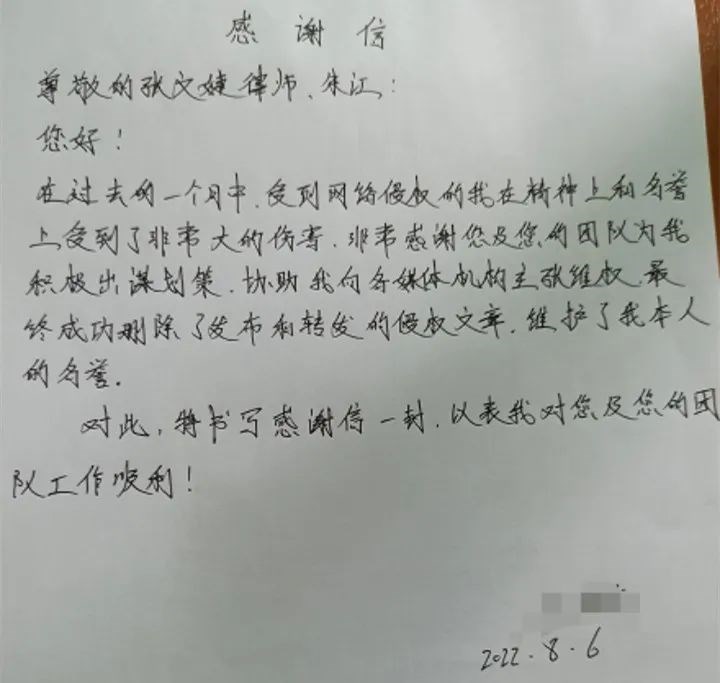 感谢信
尊敬的张文婕律师、朱江:
您好!
在过去的一个月中,受到网络侵权的我在精神上和名誉
上受到了非常大的伤害.非常感谢您及您的团队为我
积极出谋划策.协助我向各媒体机构主张维权.最
终成功删除了发布和转发的侵权文章.维护了我本人
的名誉.
对此,特书写感谢信一封.以表我对您及您的团
队工作顺利!
2022.8.6